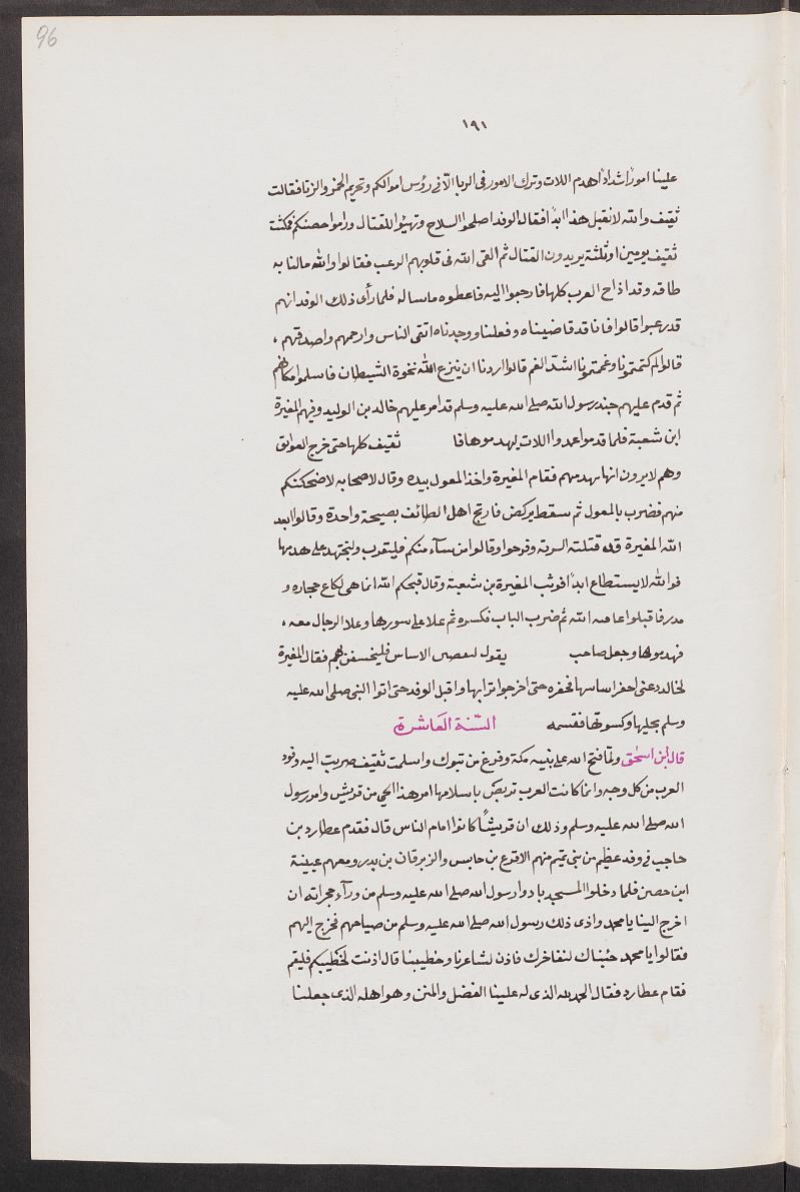 96
١٩١
علينا امورًا شدادًا هدم اللات وترك الامور فى الربا الّا فى رؤس اموالكم وتحريم الخمر والزنا فقالت
ثقيف والله لا نقبل هذا ابدًا فقال الوفد اصلحوا السلاح وتهيؤا للقتال ورموا حصنكم فمكثت
ثقيف يومين او ثلثة يريدون القتال ثم القى الله فى قلوبهم الرعب فقالوا والله مالنا به
طاقه وقد اذاح العرب كلها فارجعوا اليه فاعطوه ما ساله فلما رأى ذلك الوفد انهم
قد رعبوا قالوا فانا قد قاضيناه وفعلنا ووجدناه اتقى الناس وارحمهم واصدقهم ،
قالوا لم كتمتمونا وغممتمونا اشدّ الغم قالوا اردنا ان ينزع الله نخوة الشيطان فاسلموا مكانهم
ثم قدم عليهم رسول الله صلى الله عليه وسلم قد امر عليهم خالد بن الوليد وفيهم المغيرة
ابن شعبة فلما قدموا عمدوا اللات ليهدموها فا ثقيف كلها حتى خرج العواتق
وهم لا يرون انها تهدم فقام المغيرة واخذ المعول بيده وقال لاصحابه لاضحكنكم
منهم فضرب بالمعول ثم سقط يركض فارتج اهل الطائف بصيحة واحدة وقالوا ابعد
الله المغيرة قد قتلته الربة وفرحوا وقالوا من سآء منكم فليقرب وليجتهد على هدمها
فوالله لا يستطاع ابدًا فوثب المغيرة بن شعبة وقال قبحكم الله انما هى لكاع حجاره و
مدر فاقبلوا عافيه الله ثم ضرب الباب فكسره ثم علا على سورها وعلا الرجال معه ،
فهدموها وجعل صاحب يقول ليغصبن الاساس فليخسفن بهم فقال المغيرة
لخالد دعنى احفر اساسها فحفره حتى اخرجوا ترابها واقبل الوفد حتى اتوا النبى صلى الله عليه
وسلم بحليها وكسوتها فقسمه السّنة العَاشرة
قال ابن اسحٰق ولمّا فتح الله على نبيه مكة وفرغ من تبوك واسلمت ثقيف ضربت اليه وفود
العرب من كل وجه وانما كانت العرب تربص باسلامها امر هذا الحى من قريش وامر رسول
الله صلى الله عليه وسلم وذلك ان قريشًا كانوا امام الناس قال فقدم عطارد بن
حاجب فى وفد عظيم من بنى تميم منهم الاقرع بن حابس والزبرقان بن بدر ومعهم عيينة
ابن حصن فلما دخلوا المسجد نادوا رسول الله صلى الله عليه وسلم من ورآء حجراته ان
اخرج الينا يا محمد واذى ذلك رسول الله صلى الله عليه وسلم من صياحهم فخرج اليهم
فقالوا يا محمد جئناك لنفاخرك فاذن لشاعرنا وخطيبنا قال اذنت لخطيبكم فليقم
فقام عطارد فقال الحمد لله الذى له علينا الفضل والمنن وهو اهله الذى جعلنا